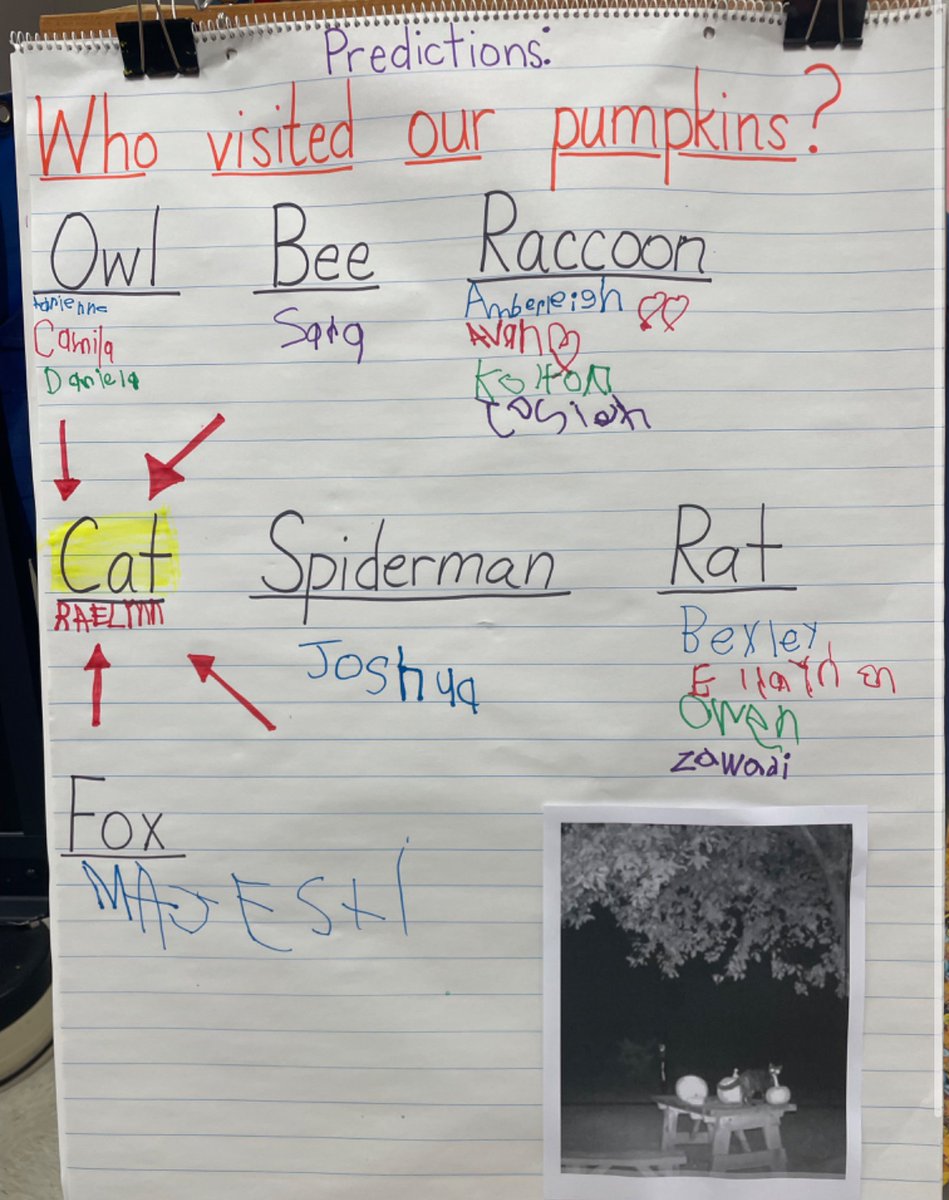 Predictions:
Who visited our pumpkins?
Owl
Adrienne
Camila
Daniela
Bee
Sara
Raccoon
Amberleigh
Avah
Kolton
Cat
RAELYNN
Spiderman
Joshua
Rat
Bexley
Owen
zawadi
Fox
MAJESti